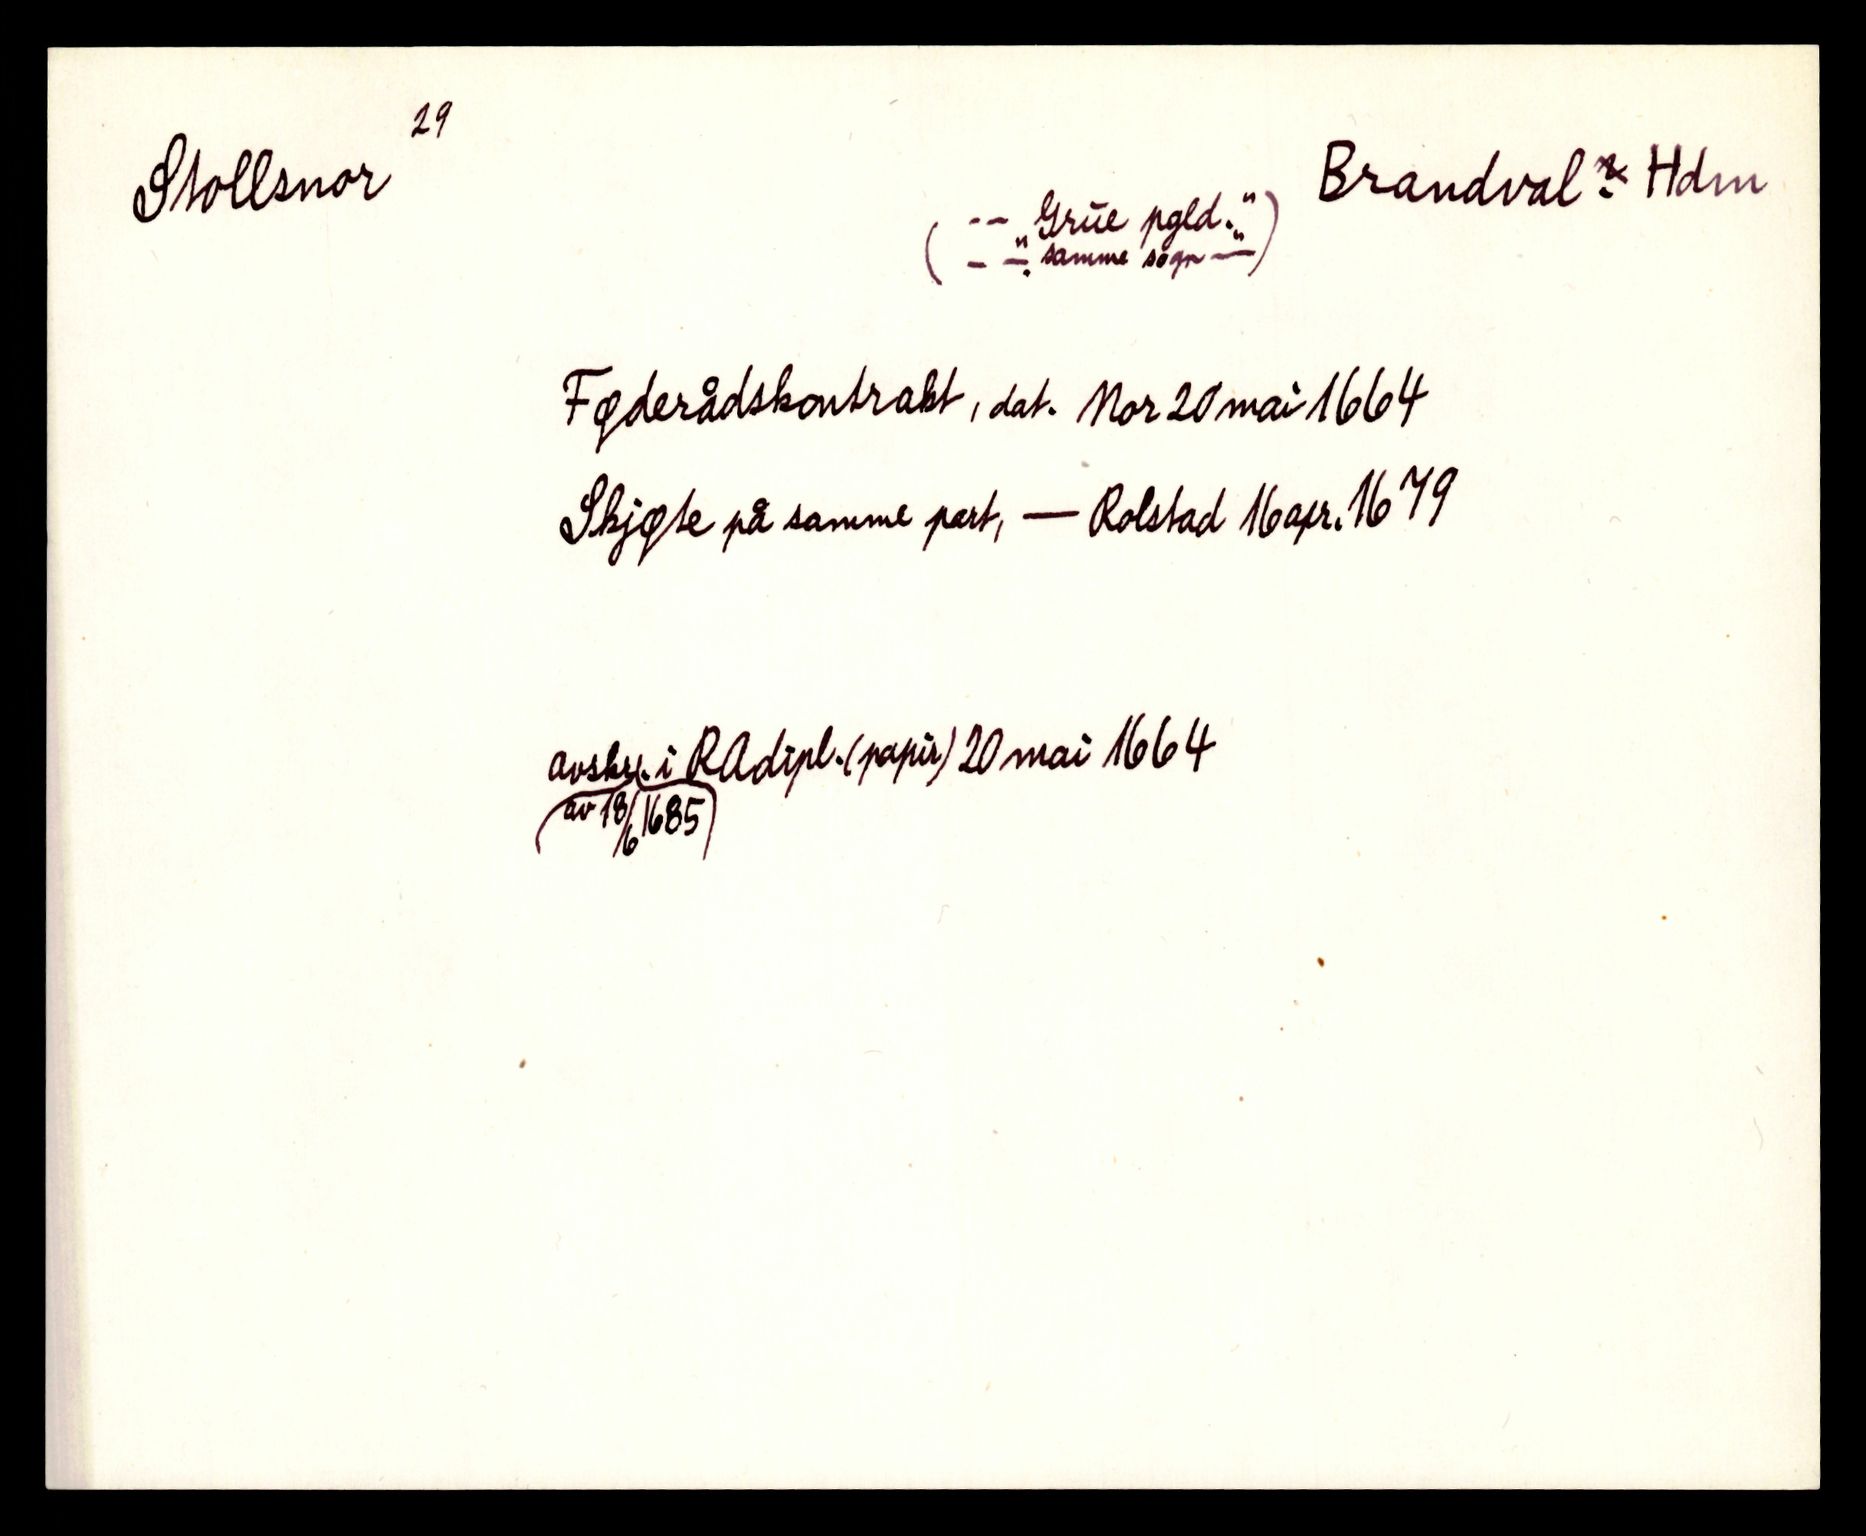 Stollsnor 29
Brandval Hdm
( -- "Grūe pgld."
- - "samme sogn" — )
Føderådskontrakt, dat. Nor 20 mai 1664
Skjøte på samme part, — Rolstad 16 apr. 1679
avskr. i RAdipl. (papir) 20 mai 1664
(av 18/6 1685)